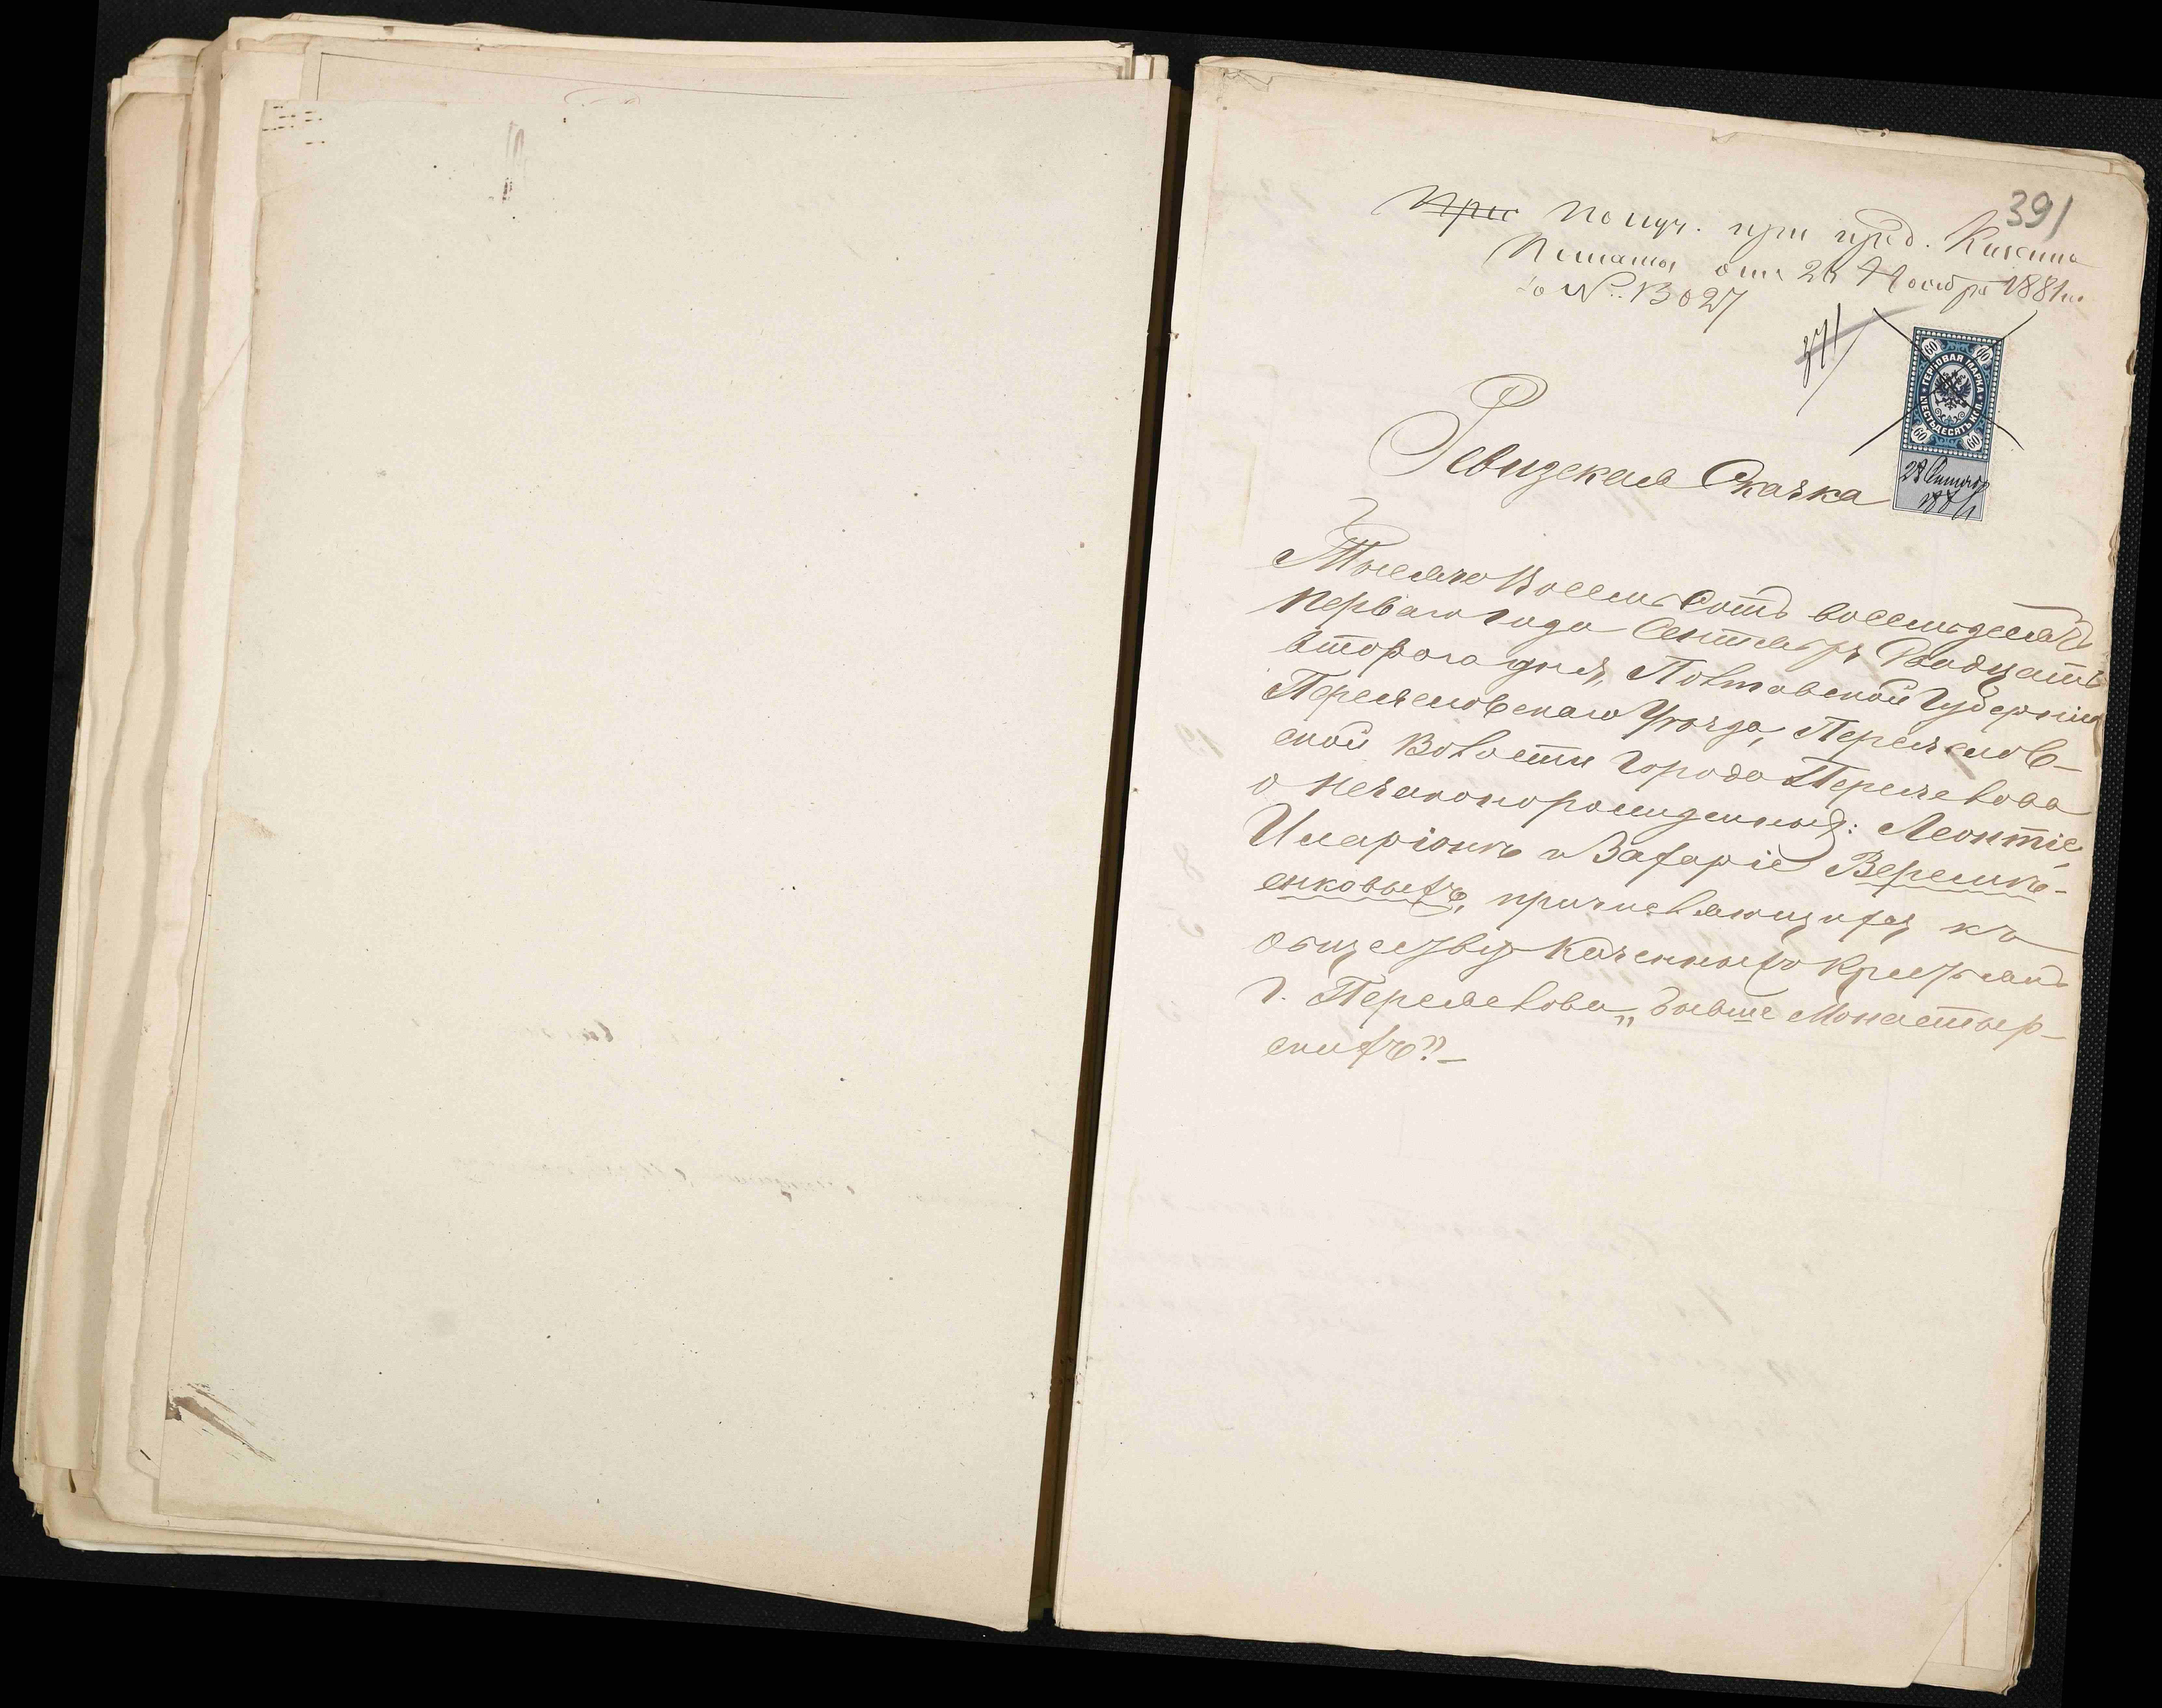 391
Получ. при пред. Казенной
Палаты отъ 26 Ноября 1881 г.
за №. 13027
371
60 60
ГЕРБОВАЯ МАРКА
ШЕСТЬДЕСЯТЪ КОП.
60 60
22 Сентября
1881
Ревизская Сказка
Тысяча Восемь Сотъ восемьдесятъ
перваго года Сентября Двадцать
втораго дня, Полтавской Губерніи
Переяславскаго Уѣзда, Переяслав-
ской Волости Города Переяслова
о незаконорожденныхъ: Леонтіе,
Иларіонѣ и Захаріе Верешко-
енковыхъ, причисляющихся къ
обществу Казенныхъ Крестьянъ
г. Переяслова „бывше Монастыр-
скихъ“. –